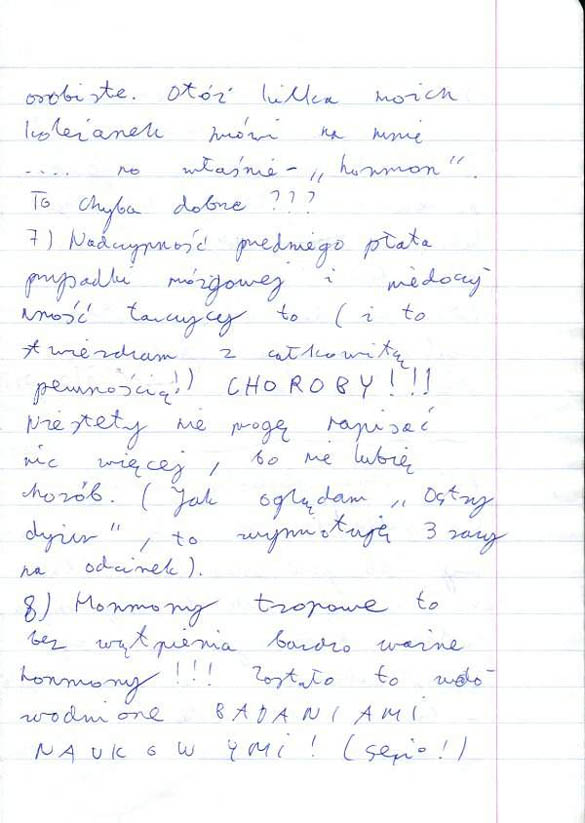 osobiste. Otóż kilka moich
koleżanek mówi na mnie
.... no właśnie - „hormon".
To chyba dobrze ???
7) Nadczynność przedniego płata
przysadki mózgowej i niedoczy-
nność tarczycy to (i to
stwierdzam z całkowitą
pewnością!) CHOROBY!!!
Niestety nie mogę napisać
nic więcej, bo nie lubię
chorób. (Jak oglądam „Ostry
dyżur", to wymiotuję 3 razy
na odcinek).
8) Hormony tropowe to
bez wątpienia bardzo ważne
hormony!!! Zostało to udo-
wodnione BADANIAMI
NAUKOWYMI! (serio!)